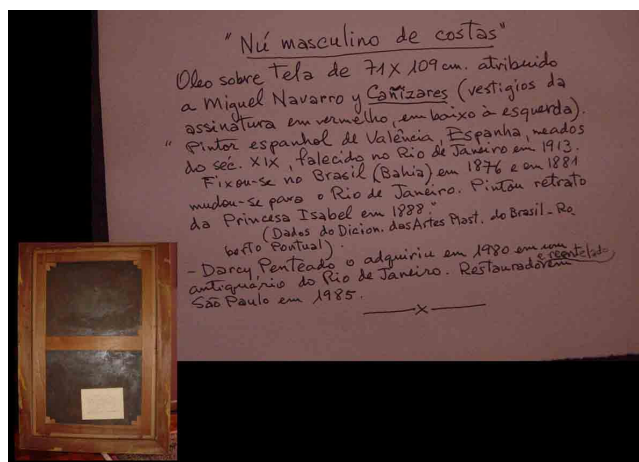 "Nú masculino de costas"
Oleo sobre Tela de 71 X 109 cm. atribuido
a Miguel Navarro y Cañizares (vestigios da
assinatura em vermelho, em baixo à esquerda).
" Pintor espanhol de Valência, Espanha, meados
do séc. XIX, falecido no Rio de Janeiro em 1913.
Fixou-se no Brasil (Bahia) em 1876 e em 1881
mudou-se para o Rio de Janeiro. Pintou retrato
da Princesa Isabel em 1888."
(Dados do Dicion. das Artes Plast. do Brasil - Ro
berto Pontual).
- Darcy Penteado o adquiriu em 1980 em um
antiquário do Rio de Janeiro. Restaurado e reentelado em
São Paulo em 1985.
x